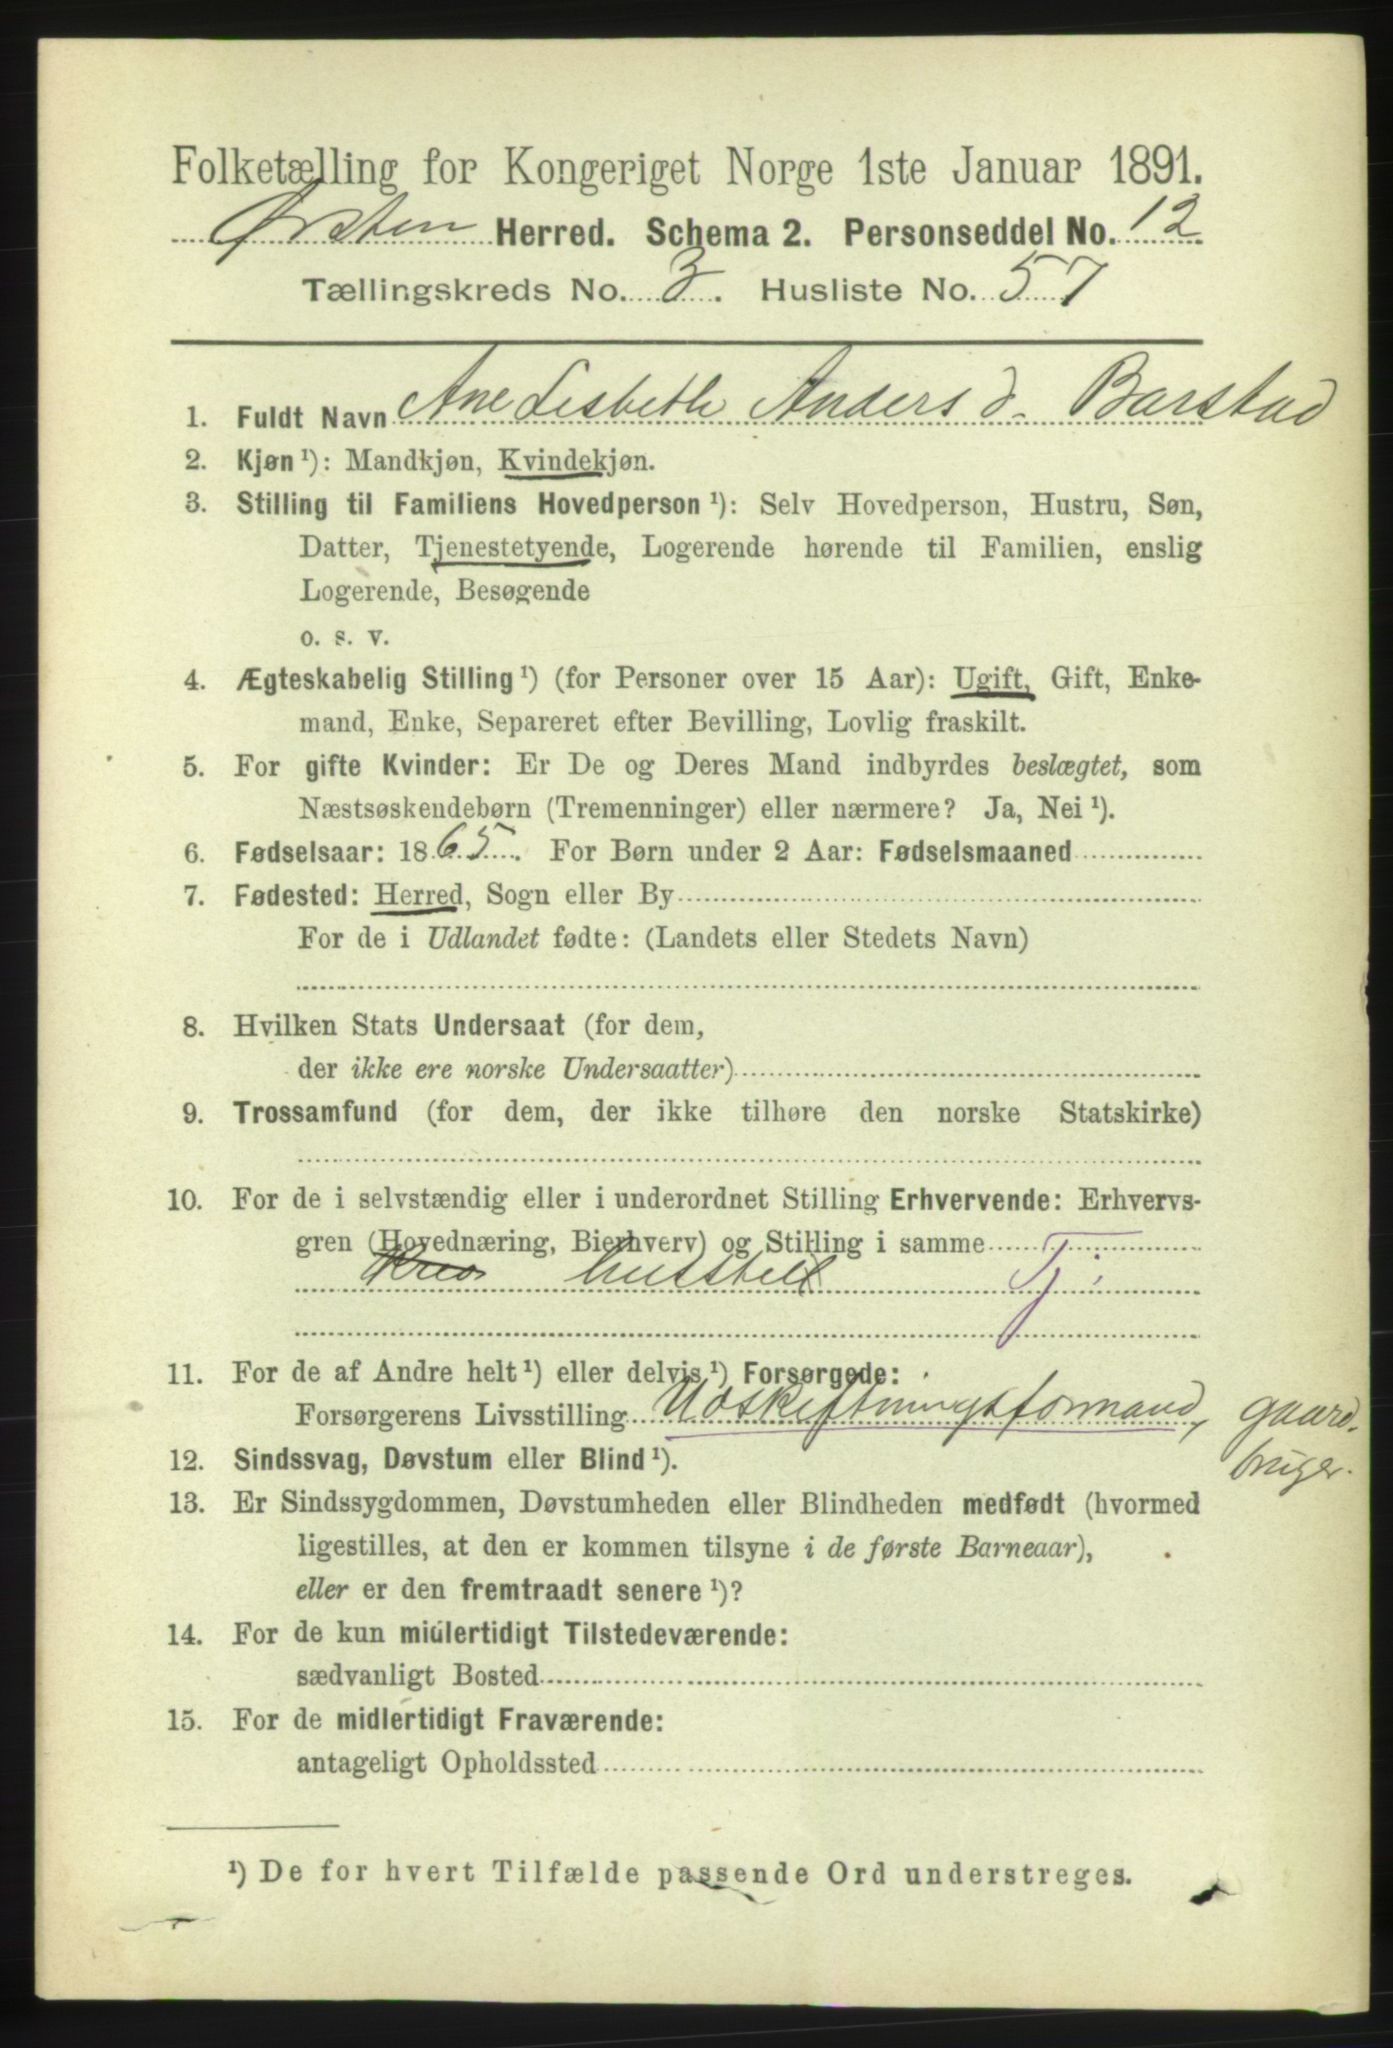 Folketælling for Kongeriget Norge 1ste Januar 1891.
Ørsten Herred. Schema 2. Personseddel No. 12
Tællingskreds No. 3. Husliste No. 57
1. Fuldt Navn Ane Lisbeth Anders d. Barstad
2. Kjøn ¹): Mandkjøn, Kvindekjøn.
3. Stilling til Familiens Hovedperson ¹): Selv Hovedperson, Hustru, Søn,
Datter, Tjenestetyende, Logerende hørende til Familien, enslig
Logerende, Besøgende
o. s. v.
4. Ægteskabelig Stilling ¹) (for Personer over 15 Aar): Ugift, Gift, Enke-
mand, Enke, Separeret efter Bevilling, Lovlig fraskilt.
5. For gifte Kvinder: Er De og Deres Mand indbyrdes beslægtet, som
Næstsøskendebørn (Tremenninger) eller nærmere? Ja, Nei ¹).
6. Fødselsaar: 1865. For Børn under 2 Aar: Fødselsmaaned
7. Fødested: Herred, Sogn eller By
For de i Udlandet fødte: (Landets eller Stedets Navn)
8. Hvilken Stats Undersaat (for dem,
der ikke ere norske Undersaatter)
9. Trossamfund (for dem, der ikke tilhøre den norske Statskirke)
10. For de i selvstændig eller i underordnet Stilling Erhvervende: Erhvervs-
gren (Hovednæring, Bierhverv) og Stilling i samme
husstell Tj:
11. For de af Andre helt ¹) eller delvis ¹) Forsørgede:
Forsørgerens Livsstilling Udskiftningsformand, gaard-
bruger.
12. Sindssvag, Døvstum eller Blind ¹).
13. Er Sindssygdommen, Døvstumheden eller Blindheden medfødt (hvormed
ligestilles, at den er kommen tilsyne i de første Barneaar),
eller er den fremtraadt senere ¹)?
14. For de kun midlertidigt Tilstedeværende:
sædvanligt Bosted
15. For de midlertidigt Fraværende:
antageligt Opholdssted
¹) De for hvert Tilfælde passende Ord understreges.